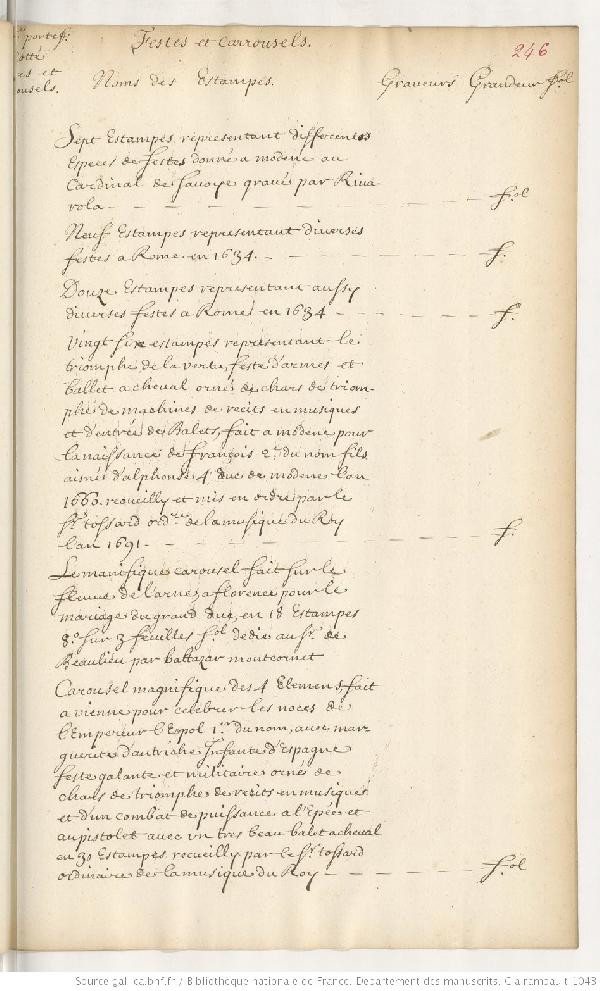 portef:
otté
es et
ousels.
Festes et Carrousels.
246
Noms des Estampes. Graveurs Grandeur fol
Sept Estampes representant differentes
Especes de festes donné a modene au
Cardinal de Savoye gravé par Riva
rola — fol
Neuf Estampes representant diverses
festes a Rome en 1634. — f.
Douze Estampes representant aussy
diverses festes a Rome en 1634 — f.
Vingt six estampes representant le
triomphe de la vertu, feste d'armes et
ballet a cheval orné de chars de triom-
phe de machines de recits en musiques
et d'entrée de Balets, fait a modene pour
la naissance de françois 2. du nom fils
aisnés d'alphonse 4e duc de modene l'an
1660. recueilly et mis en ordre par le
Sr. tossard ordre de la musique du Roy
l'an 1691 — f.
Le manifique carousel fait sur le
fleuve de l'arne a florence pour le
mariage du grand duc, en 18 Estampes
8.o sur 3 feuilles fol dedie au sr. de
Beaulieu par baltazar montcornet
Carousel magnifique des 4 Elemens fait
a vienne pour celebrer les noces de
l'Empereur Leopol 1er du nom, avec mar
guerite d'autriche Infante d'Espagne
feste galante et militaire ornés de
chars de triomphe de recits en musiques
et d'un combat de puissance a l'Epée et
au pistolet avec un tres beau balet a cheval
en 30 Estampes recueilly par le Sr. tossard
ordinaire de la musique du Roy — fol
Source gallica.bnf.fr / Bibliothèque nationale de France. Département des manuscrits. Clairambault 1043